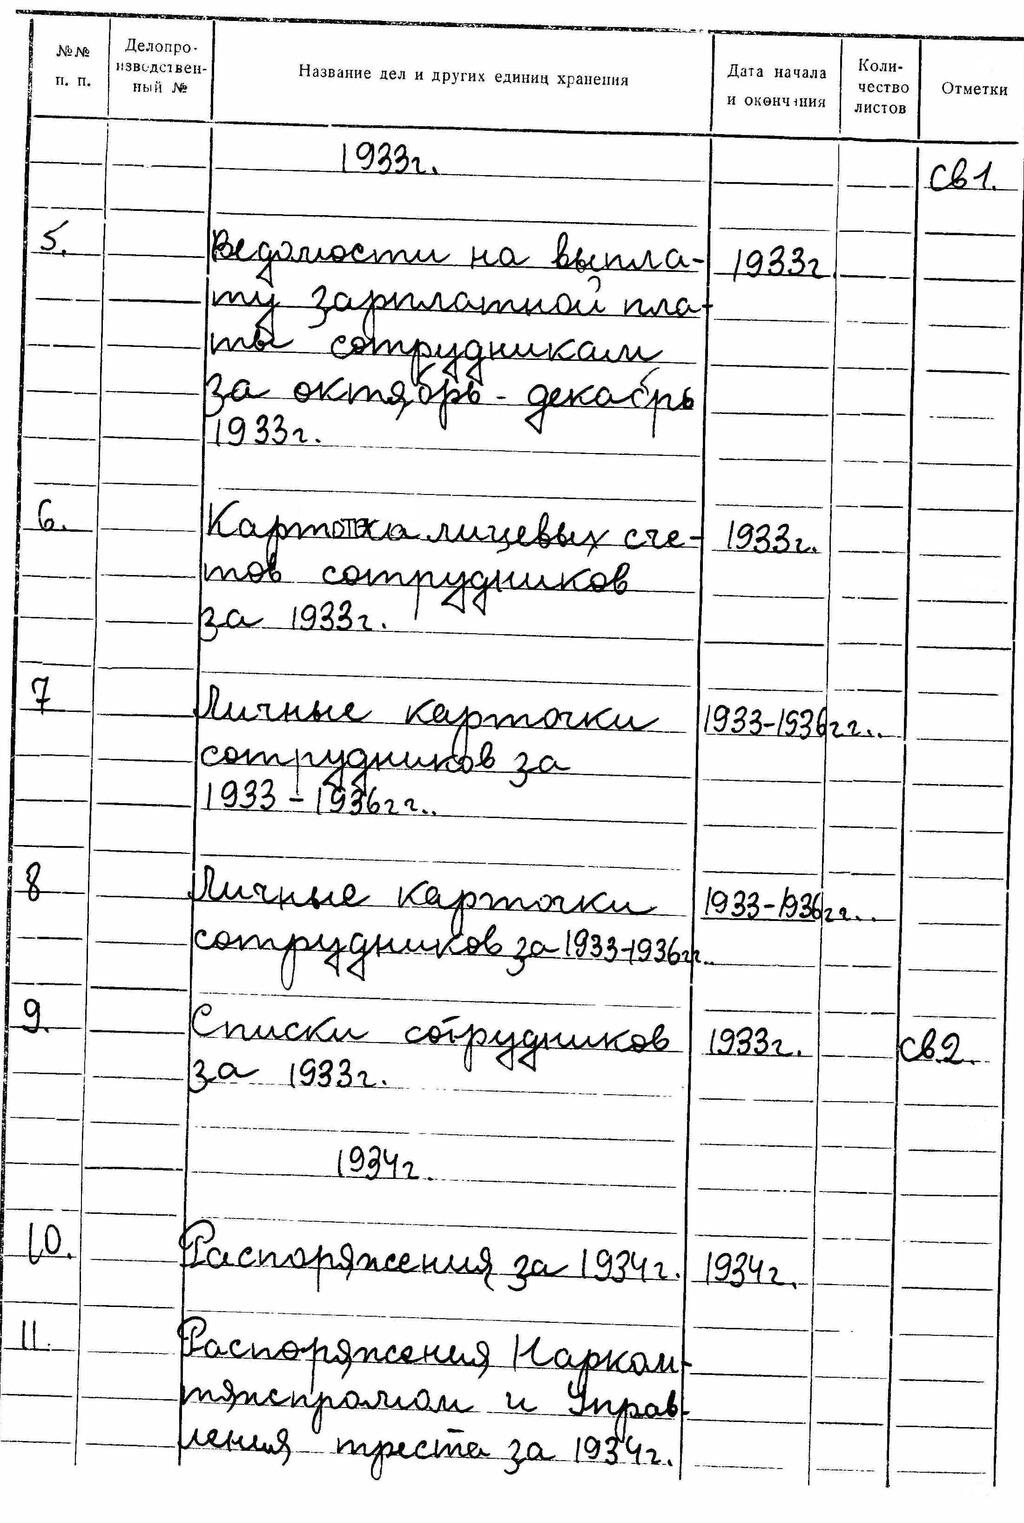 №№ п. п. Делопро-изводствен-ный № Название дел и других единиц хранения Дата начала и окончания Коли-чество листов Отметки
1933г. св1.
5. Ведомости на выпла- 1933г
ту зарплатной пла-
ты сотрудникам
за октябрь - декабрь
1933г.
6. Картотека лицевых сче- 1933г.
тов сотрудников
за 1933г.
7 Личные карточки 1933-1936гг..
сотрудников за
1933-1936гг..
8 Личные карточки 1933-1936гг..
сотрудников за 1933-1936гг..
9. Списки сотрудников 1933г. св.2.
за 1933г.
1934г.
10. Распоряжения за 1934г. 1934г.
11. Распоряжения Нарком-
тяжпромом и Управ-
ления треста за 1934г.